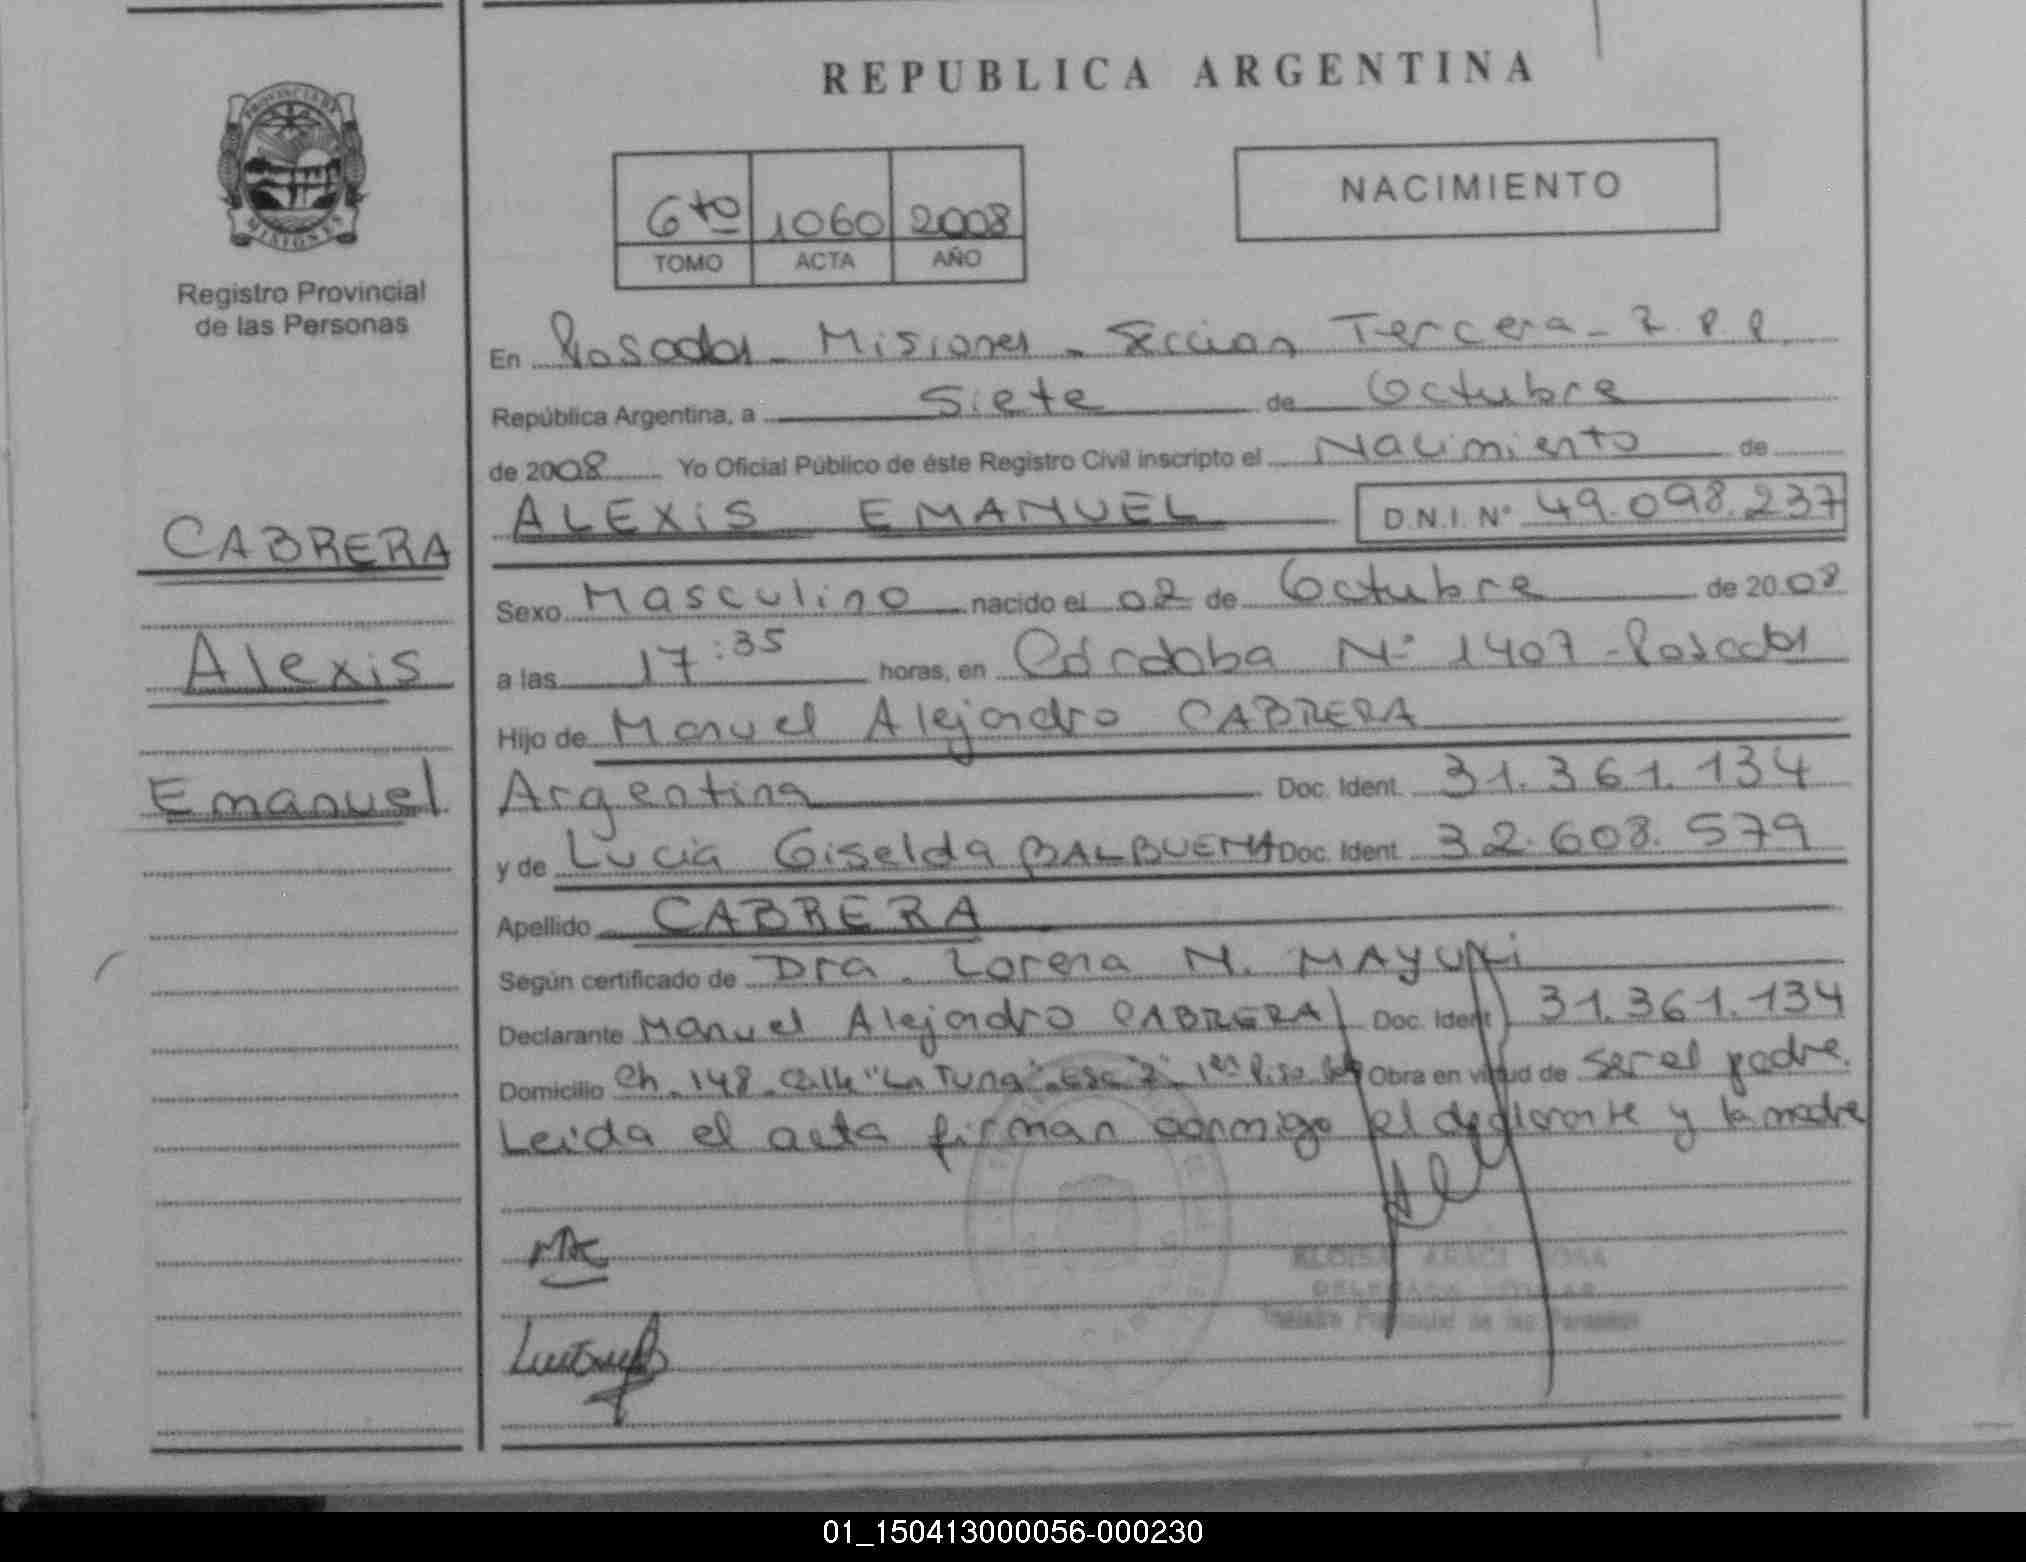 REPUBLICA ARGENTINA
PROVINCIA DE
MISIONES
Registro Provincial
de las Personas
6to 1060 2008
TOMO ACTA AÑO
NACIMIENTO
En Posadas - Misiones - Sección Tercera - R.P.P.
República Argentina, a Siete de Octubre
de 2008 Yo Oficial Público de éste Registro Civil inscripto el Nacimiento de
ALEXIS EMANUEL D.N.I. Nº 49.098.237
CABRERA
Alexis
Emanuel
Sexo Masculino nacido el 02 de Octubre de 2008
a las 17:35 horas, en Córdoba Nº 1407 - Posadas
Hijo de Manuel Alejandro CABRERA
Argentina Doc. Ident. 31.361.134
y de Lucia Giselda BALBUENA Doc. Ident. 32.608.579
Apellido CABRERA
Según certificado de Dra. Lorena N.
Declarante Manuel Alejandro CABRERA Doc. Ident. 31.361.134
Domicilio Ch. 148 - Calle "La Tuna" - Esc. 2 - 1er Piso Obra en virtud de ser el padre.
Leida el acta firman conmigo el declarante y la madre
MAC
Registro Provincial de las Personas
01_150413000056-000230